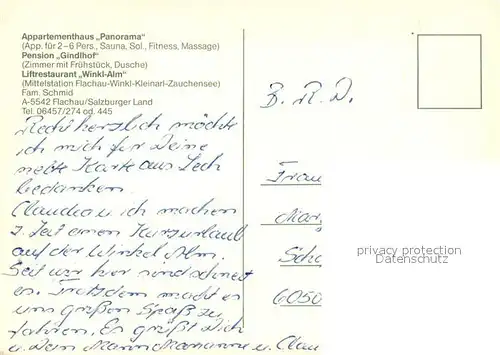 Appartementhaus „Panorama“
(App. für 2–6 Pers., Sauna, Sol., Fitness, Massage)
Pension „Gindlhof“
(Zimmer mit Frühstück, Dusche)
Liftrestaurant „Winkl-Alm“
(Mittelstation Flachau-Winkl-Kleinarl-Zauchensee)
Fam. Schmid
A-5542 Flachau/Salzburger Land
Tel. 06457/274 od. 445
Recht herzlich möchte
ich mich für Deine
nette Karte aus Lech
bedanken.
Claudia u. ich machen
z. Zeit einen Kurzurlaub
auf der Winkel Alm.
Seit wir hier sind schneit
es. Trotzdem macht es
uns großen Spaß zu
fahren. Es grüßt Dich
u. Dein Marianne u. Clau
B. R. D.
Frau
Mar
Sch
6050
privacy protection
Datenschutz